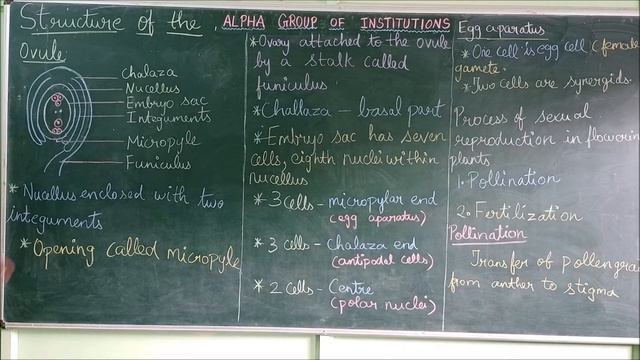 Structure of the
Ovule
Chalaza
Nucellus
Embryo sac
Integuments
Micropyle
Funiculus
* Nucellus enclosed with two
integuments
* Opening called micropyle
ALPHA GROUP OF INSTITUTIONS
* Ovary attached to the ovule
by a stalk called
funiculus
* Challaza – basal part
* Embryo sac has seven
cells, eighth nuclei within
nucellus
* 3 cells – micropylar end
(egg aparatus)
* 3 cells – chalaza end
(antipodal cells)
* 2 cells – Centre
(polar nuclei)
Egg aparatus
* One cell is egg cell (female
gamete.
* Two cells are synergids.
Process of sexual
reproduction in flowerin
plants
1. Pollination
2. Fertilization
Pollination
Transfer of pollengrai
from anther to stigma